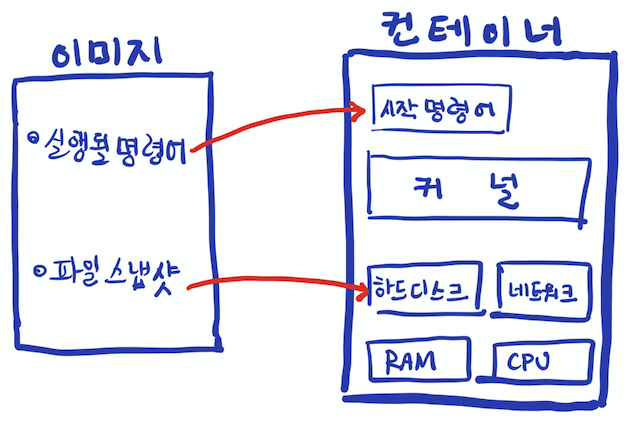 이미지
실행될 명령어
파일 스냅샷
컨테이너
시작 명령어
커 널
하드디스크
네트워크
RAM
CPU